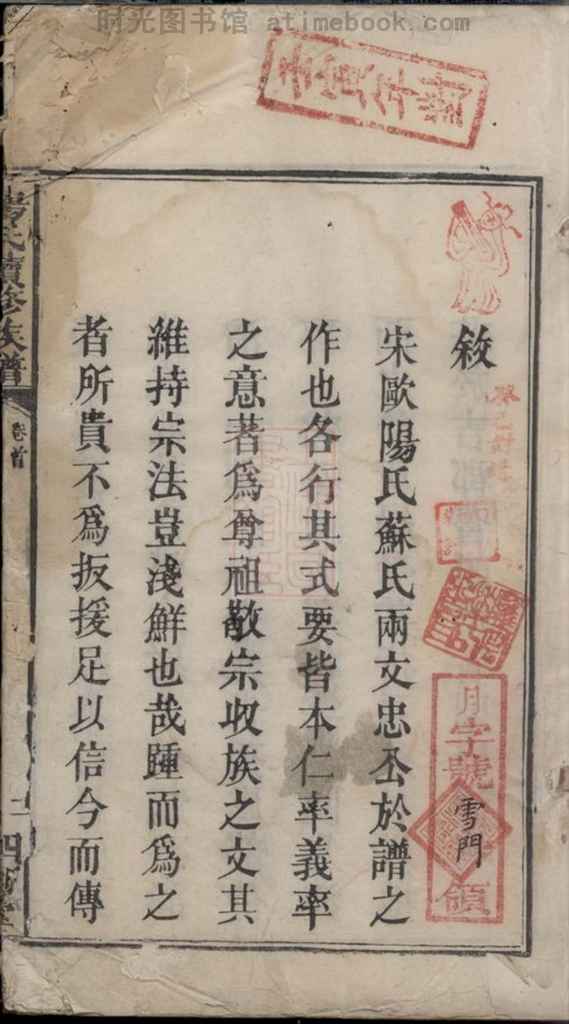 时光图书馆 atimebook.com
敘
宋歐陽氏蘇氏兩文忠公於譜之
作也各行其式要皆本仁率義率
之意著爲尊祖敬宗收族之文其
維持宗法豈淺鮮也哉踵而爲之
者所貴不爲扳援足以信今而傳
月字號
雪門
領
氏續修族譜
卷首